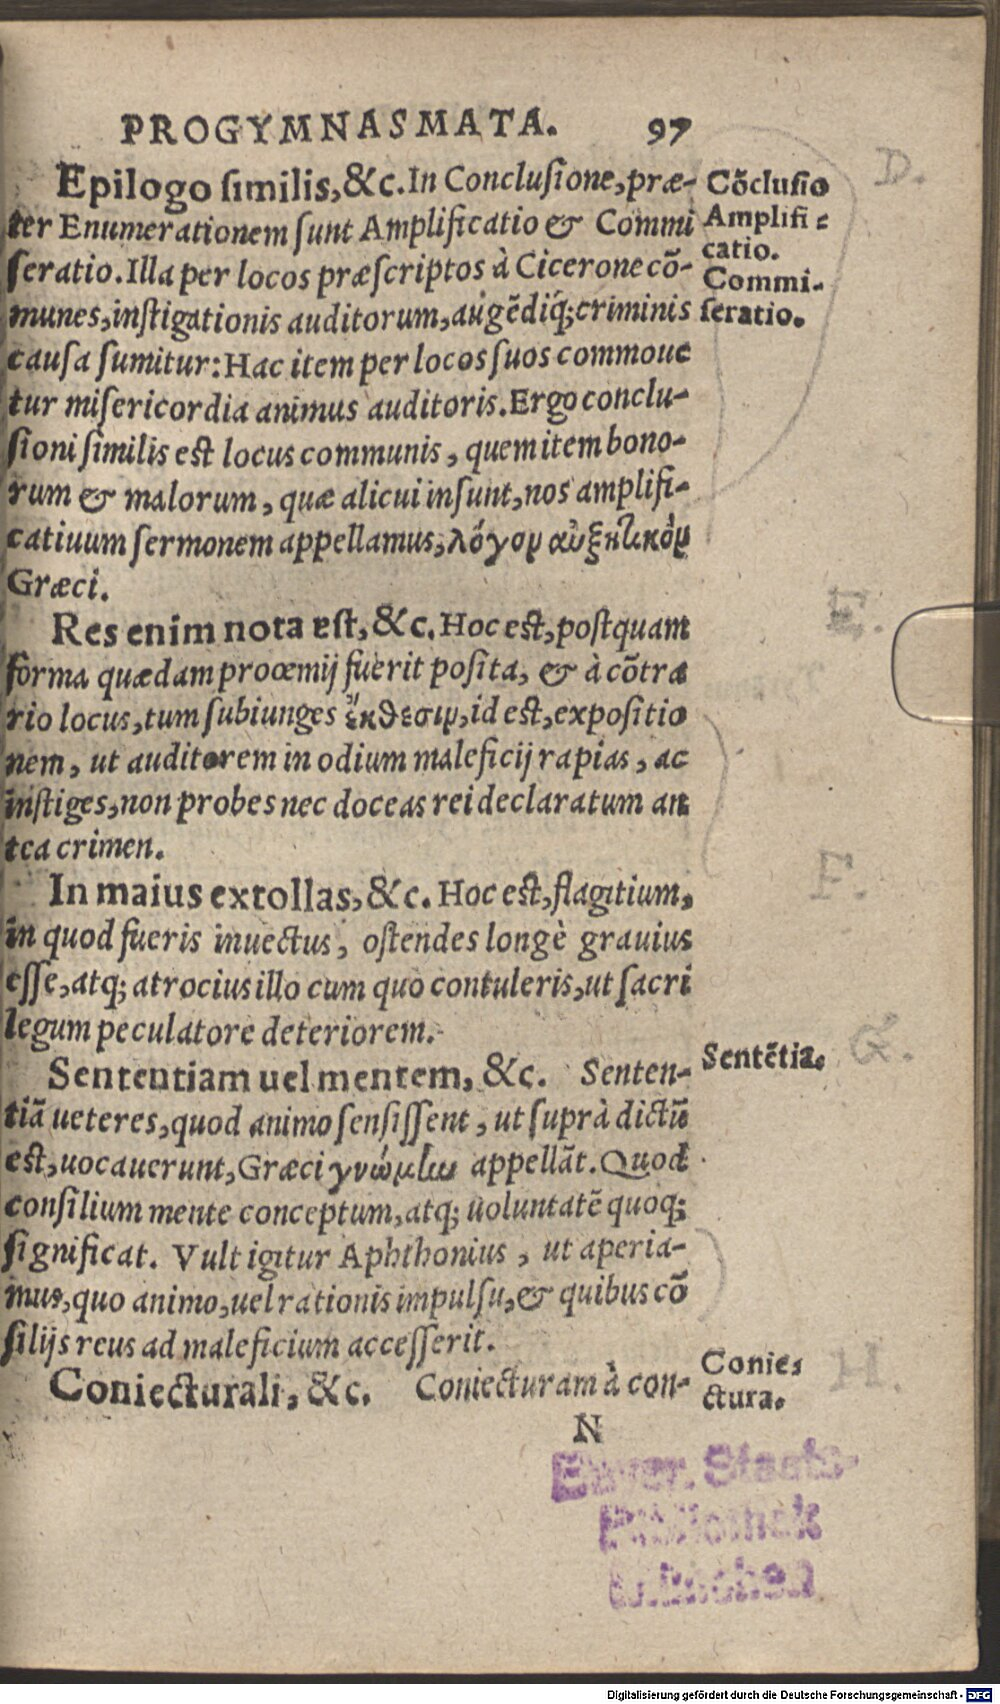 PROGYMNASMATA. 97
Epilogo similis, &c. In Conclusione, præ-
ter Enumerationem sunt Amplificatio & Commi
seratio. Illa per locos præscriptos à Cicerone cō-
munes, instigationis auditorum, augēdiq́; criminis
causa sumitur: Hac item per locos suos commoue
tur misericordia animus auditoris. Ergo conclu-
sioni similis est locus communis, quem item bono-
rum & malorum, quæ alicui insunt, nos amplifi-
catiuum sermonem appellamus, λόγον αὐξητικὸν
Græci.
Cōclusio
Amplifi-
catio.
Commi-
seratio.
D.
Res enim nota est, &c. Hoc est, postquam
forma quædam proœmij fuerit posita, & à cōtra
rio locus, tum subiunges ἔκθεσιν, id est, expositio
nem, ut auditorem in odium maleficij rapias, ac
instiges, non probes nec doceas rei declaratum an
tea crimen.
E.
In maius extollas, &c. Hoc est, flagitium,
in quod fueris inuectus, ostendes longè grauius
esse, atq; atrocius illo cum quo contuleris, ut sacri
legum peculatore deteriorem.
F.
Sententiam uel mentem, &c. Senten-
tiā ueteres, quod animo sensissent, ut suprà dictū
est, uocauerunt, Græci γνώμην appellāt. Quod
consilium mente conceptum, atq; uoluntatē quoq;
significat. Vult igitur Aphthonius, ut aperia-
mus, quo animo, uel rationis impulsu, & quibus cō
silijs reus ad maleficium accesserit.
Sentētia.
G.
Coniecturali, &c. Coniecturam à con-
Conie-
ctura.
H.
N
Bayer. Staats-
Bibliothek
München
Digitalisierung gefördert durch die Deutsche Forschungsgemeinschaft - DFG